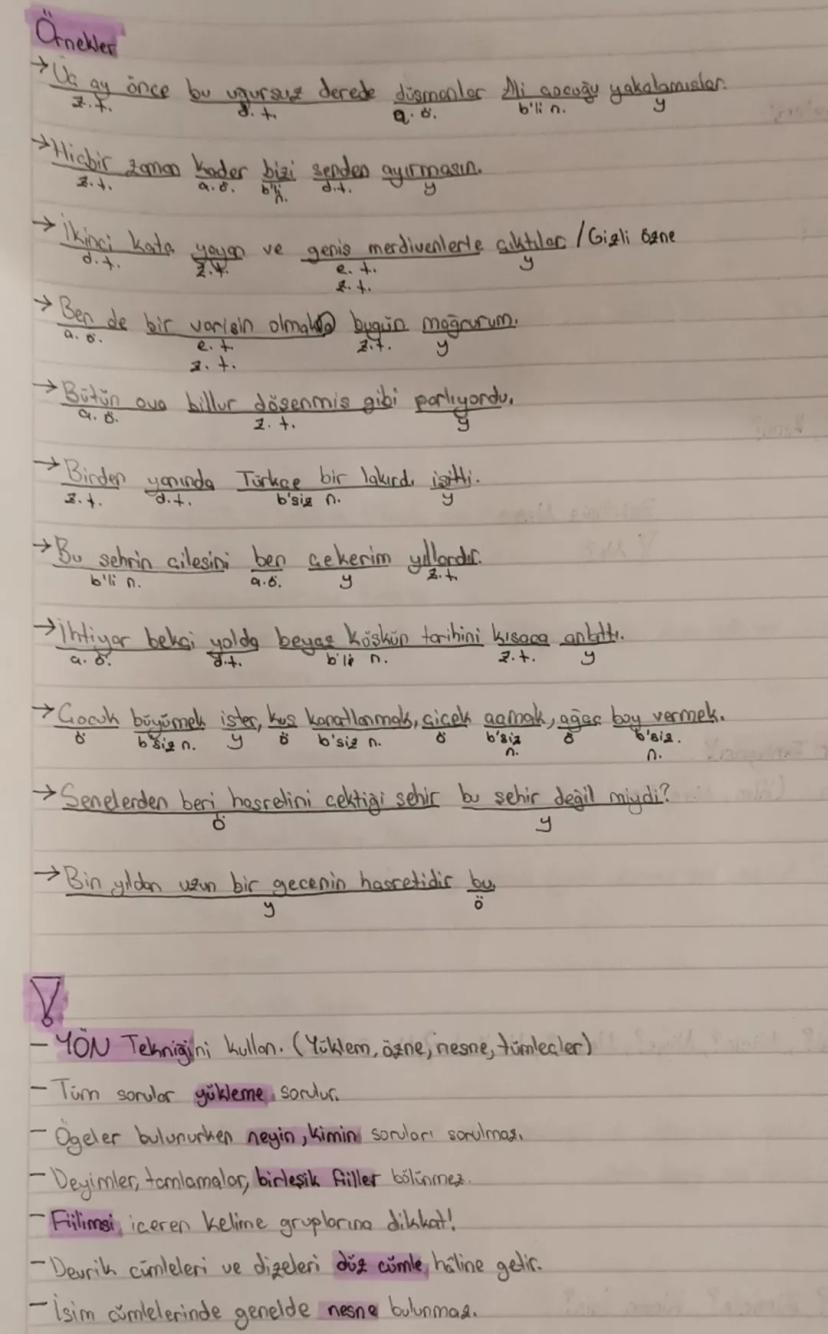 Örnekler
→ Üç ay önce bu uğursuz derede düşmanlar Ali çocuğu yakalamışlar.
z.t. d.t. a.ö. b'li n. y
→ Hiçbir zaman kader bizi senden ayırmasın.
z.t. a.ö. b'li n. d.t. y
→ İkinci kata yayan ve geniş merdivenlerle çıktılar / Gizli özne
d.t. z.t. e.t. y
z.t.
→ Ben de bir varisin bugün mağrurum.
a.ö. e.t. z.t. y
z.t.
→ Bütün ova billur döşenmiş gibi parlıyordu.
a.ö. z.t. y
→ Birden yanında Türkçe bir lakırdı işitti.
z.t. d.t. b'siz n. y
→ Bu şehrin çilesini ben çekerim yıllardır.
b'li n. a.ö. y z.t.
→ İhtiyar bekçi yolda beyaz köşkün tarihini kısaca anlattı.
a.ö. d.t. b'li n. z.t. y
→ Çocuk büyümek ister, kuş kanatlanmak, çiçek açmak, ağaç boy vermek.
ö b'siz n. y ö b'siz n. ö b'siz n. ö b'siz n.
→ Senelerden beri hasretini çektiği şehir bu şehir değil miydi?
ö y
→ Bin yıldan uzun bir gecenin hasretidir bu.
y ö
!
- YÖN Tekniğini kullan. (Yüklem, özne, nesne, tümleçler)
- Tüm sorular yükleme sorulur.
- Ögeler bulunurken neyin, kimin soruları sorulmaz.
- Deyimler, tamlamalar, birleşik fiiller bölünmez.
- Fiilimsi içeren kelime gruplarına dikkat!
- Devrik cümleleri ve dizeleri düz cümle hâline getir.
- İsim cümlelerinde genelde nesne bulunmaz.